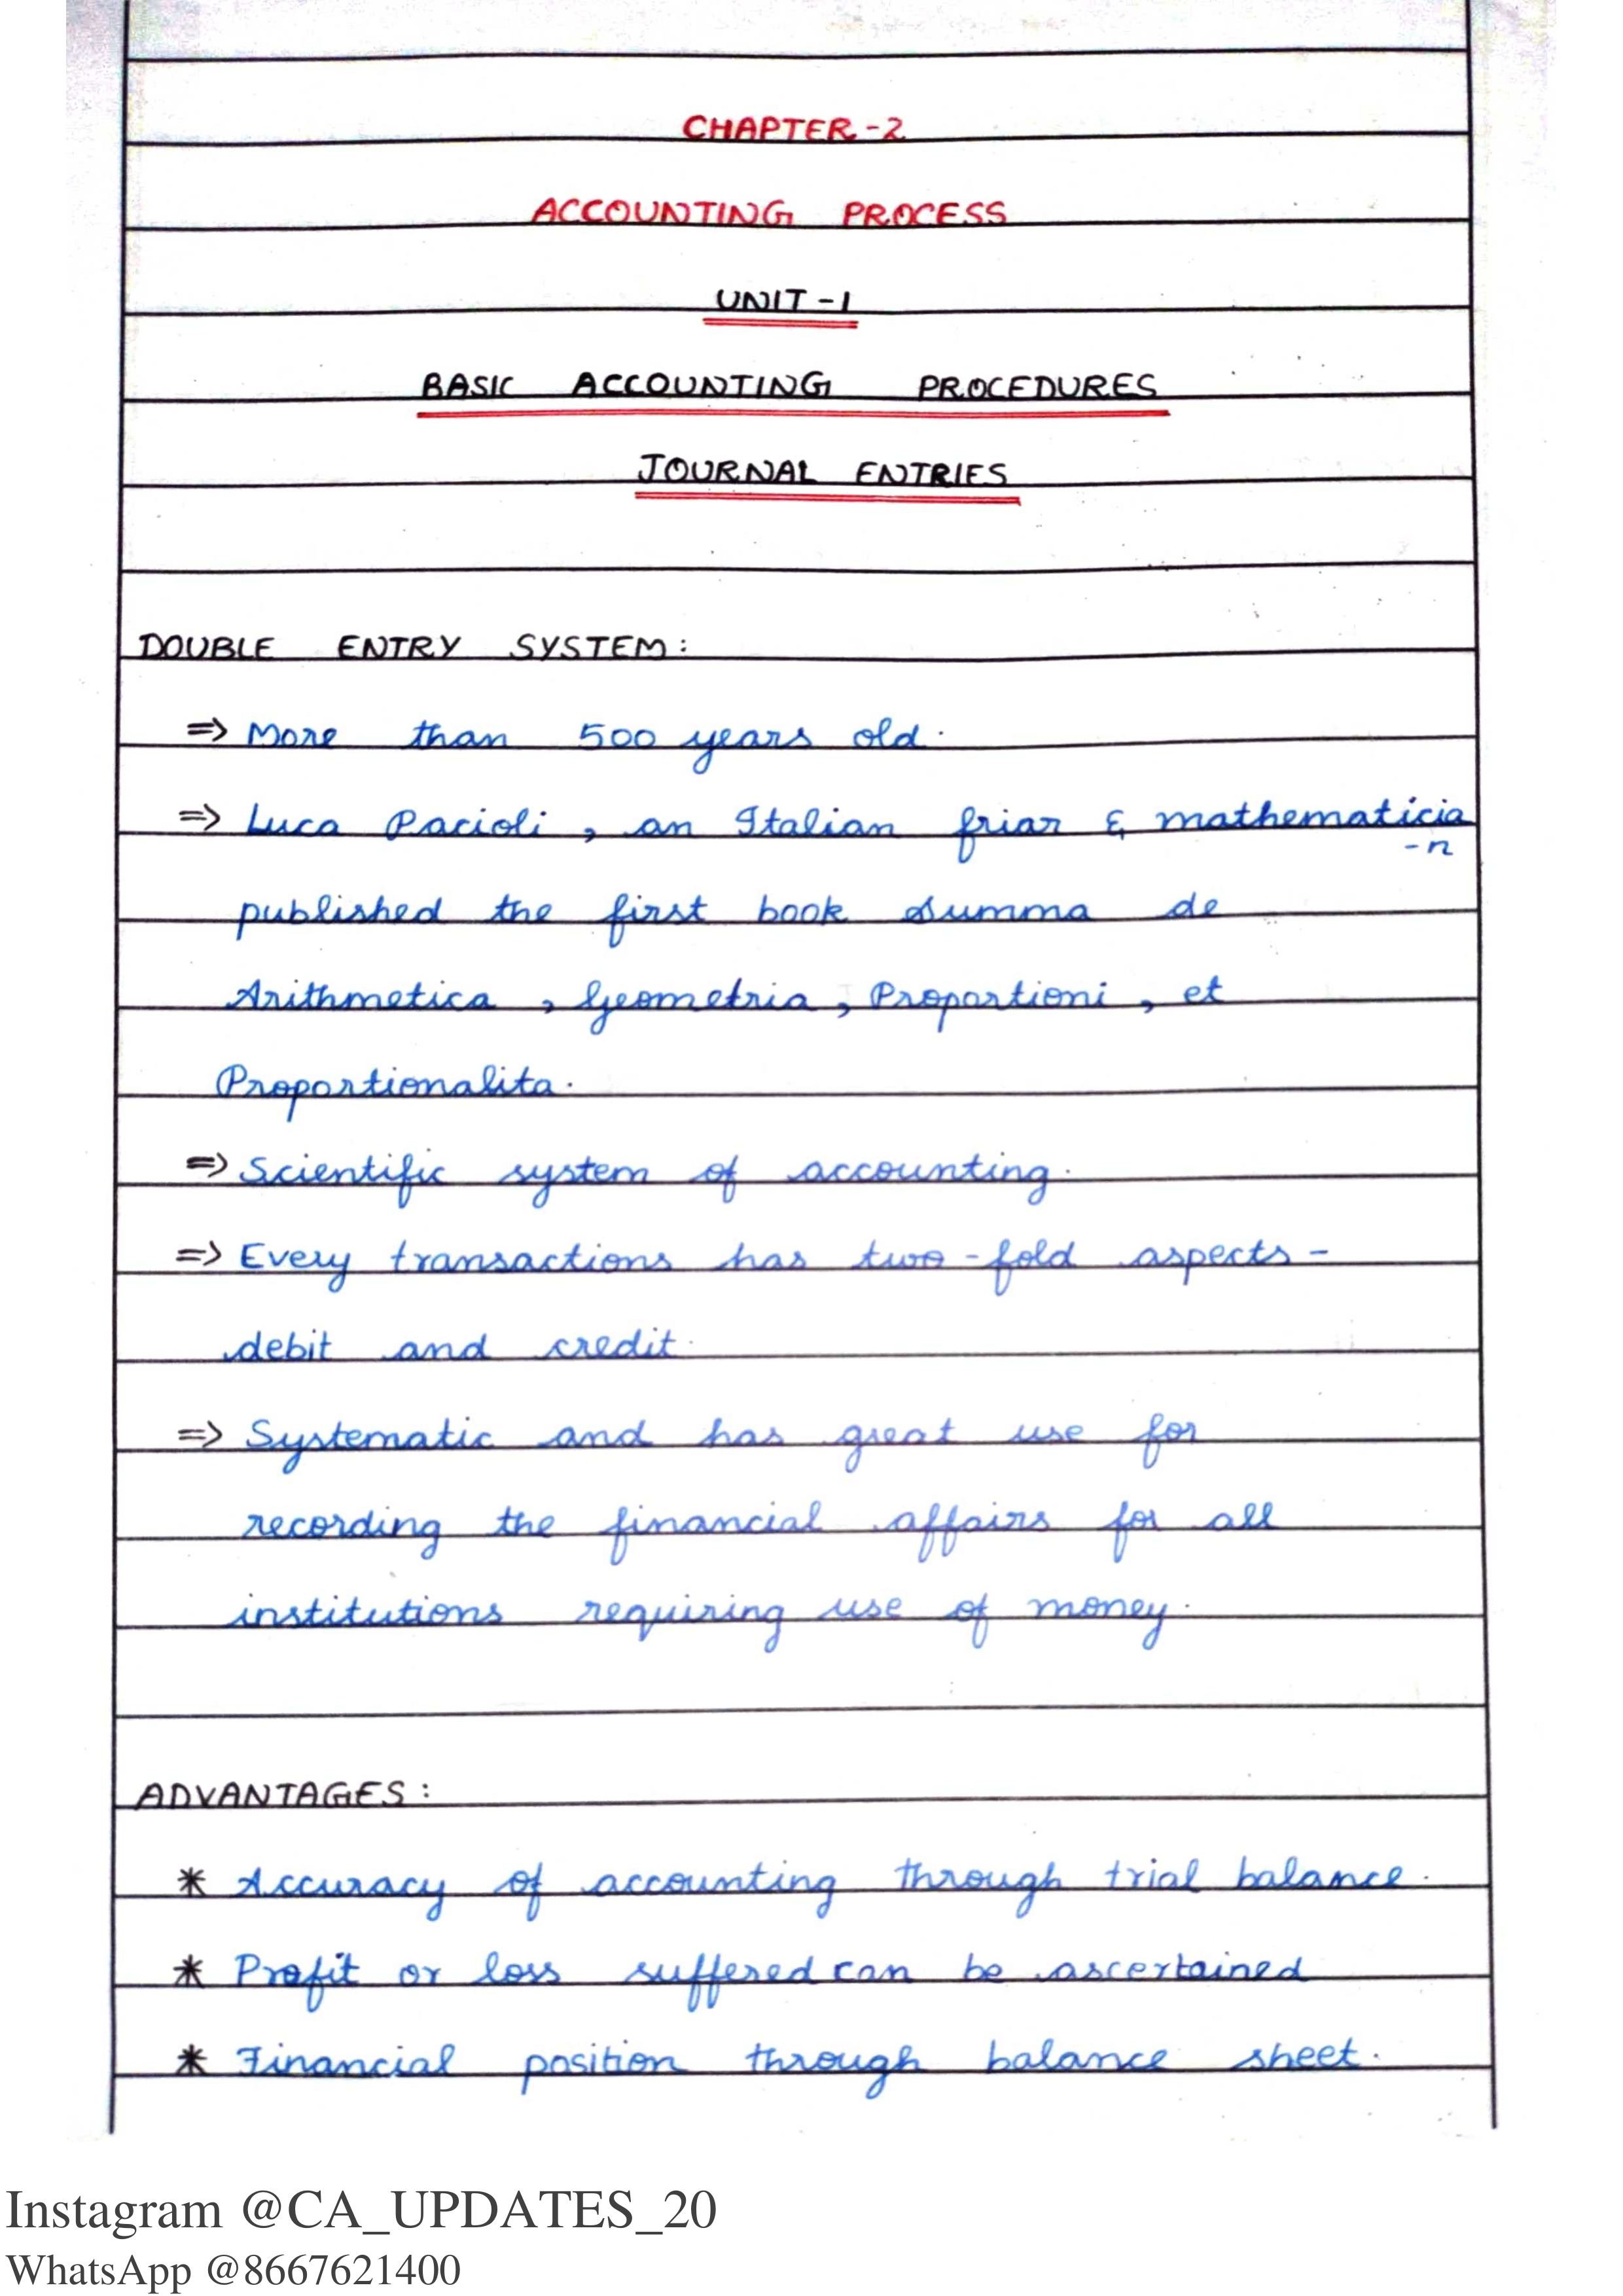 CHAPTER-2
ACCOUNTING PROCESS
UNIT-1
BASIC ACCOUNTING PROCEDURES
JOURNAL ENTRIES
DOUBLE ENTRY SYSTEM:
=> More than 500 years old.
=> Luca Pacioli, an Italian friar & mathematicia
-n
published the first book Summa de
Arithmetica, Geometria, Proportioni, et
Proportionalita.
=> Scientific system of accounting.
=> Every transactions has two-fold aspects-
debit and credit.
=> Systematic and has great use for
recording the financial affairs for all
institutions requiring use of money.
ADVANTAGES:
* Accuracy of accounting through trial balance.
* Profit or loss suffered can be ascertained
* Financial position through balance sheet.
Instagram @CA_UPDATES_20
WhatsApp @8667621400